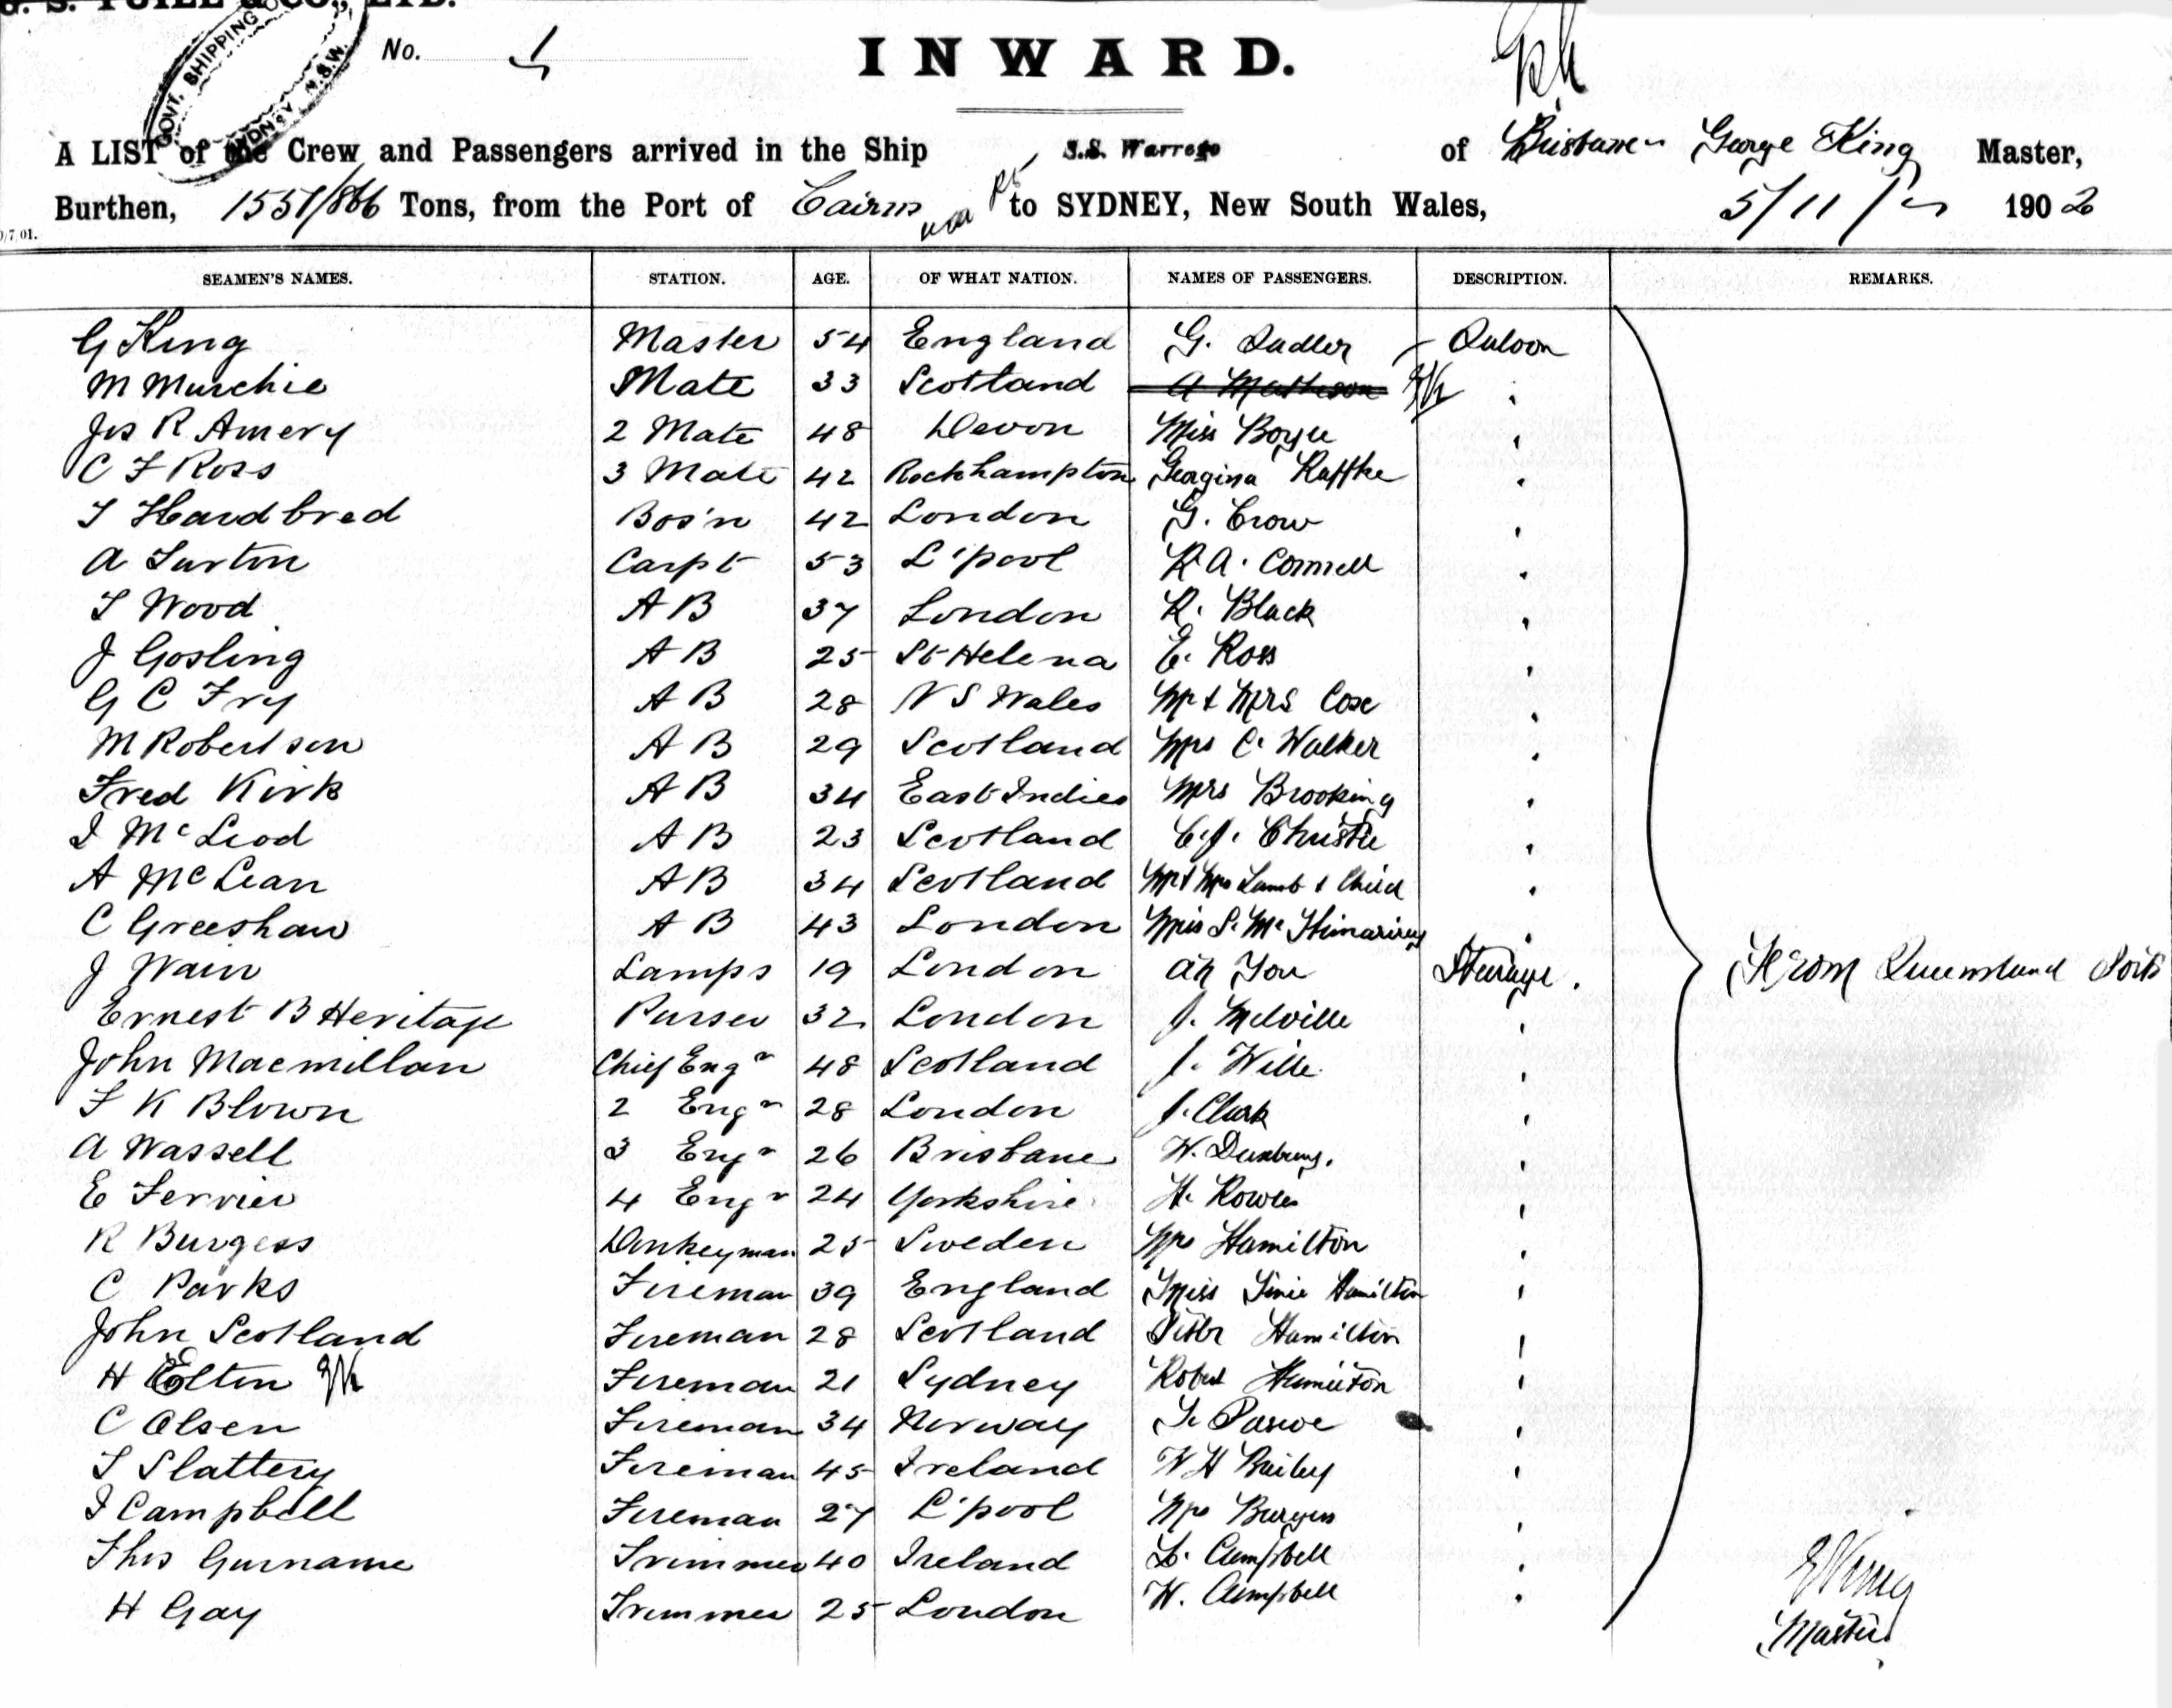 & CO., LTD.
GOVT. SHIPPING
SYDNEY N.S.W.
No. 1
INWARD.
A LIST of the Crew and Passengers arrived in the Ship S.S. Warrego of Brisbane George King Master,
Burthen, 1551/866 Tons, from the Port of Cairns to SYDNEY, New South Wales, 5/11/ 1902
7,01.
SEAMEN'S NAMES. STATION. AGE. OF WHAT NATION. NAMES OF PASSENGERS. DESCRIPTION. REMARKS.
G King Master 54 England G. Sadler Saloon
M Murchie Mate 33 Scotland A Matheson
Jas R Amery 2 Mate 48 Devon Miss Boyce
C F Ross 3 Mate 42 Rockhampton Georgina Raffke
T Hardbred Bos'n 42 London G. Crow
A Turton Carpt 53 L'pool R A. Connell
T Wood A B 37 London R. Black
J Gosling A B 25 St Helena E. Ross
G C Fry A B 28 N S Wales Mr & Mrs Cox
M Robertson A B 29 Scotland Mrs C. Walker
Fred Kirk A B 34 East Indies Mrs Brooking
D McLeod A B 23 Scotland C. J. Christie
A McLean A B 34 Scotland Mr & Mrs Lamb & Child
C Greeshaw A B 43 London Miss S. Mc
J Wain Lamps 19 London Ah You Steerage.
Ernest B Heritage Purser 32 London J. Melville
John Macmillan Chief Engr 48 Scotland J. Wille
F K Blown 2 Engr 28 London J. Clark
A Wassell 3 Engr 26 Brisbane W. Duxbury.
E Ferrier 4 Engr 24 Yorkshire H. Rowles
R Burgess Donkeyman 25 Sweden Mrs Hamilton
C Parks Fireman 39 England Miss Hamilton
John Scotland Fireman 28 Scotland Hamilton
H Elten GK Fireman 21 Sydney Robert Hamilton
C Olsen Fireman 34 Norway Pascoe
T Slattery Fireman 45 Ireland W H Bailey
J Campbell Fireman 27 L'pool Mrs Burgess
Thos Gurname Trimmer 40 Ireland L. Campbell
H Gay Trimmer 25 London W. Campbell
From Queensland Ports
G King
Master